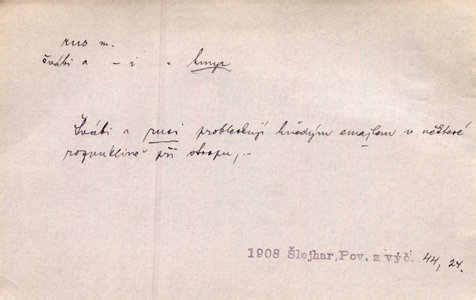 rus m.
švábi a – i » hmyz
Švábi a rusi probleskují hnědým emajlem v některé
rozpuklině při stropu, –
1908 Šlejhar, Pov. z výč. 44, 24.